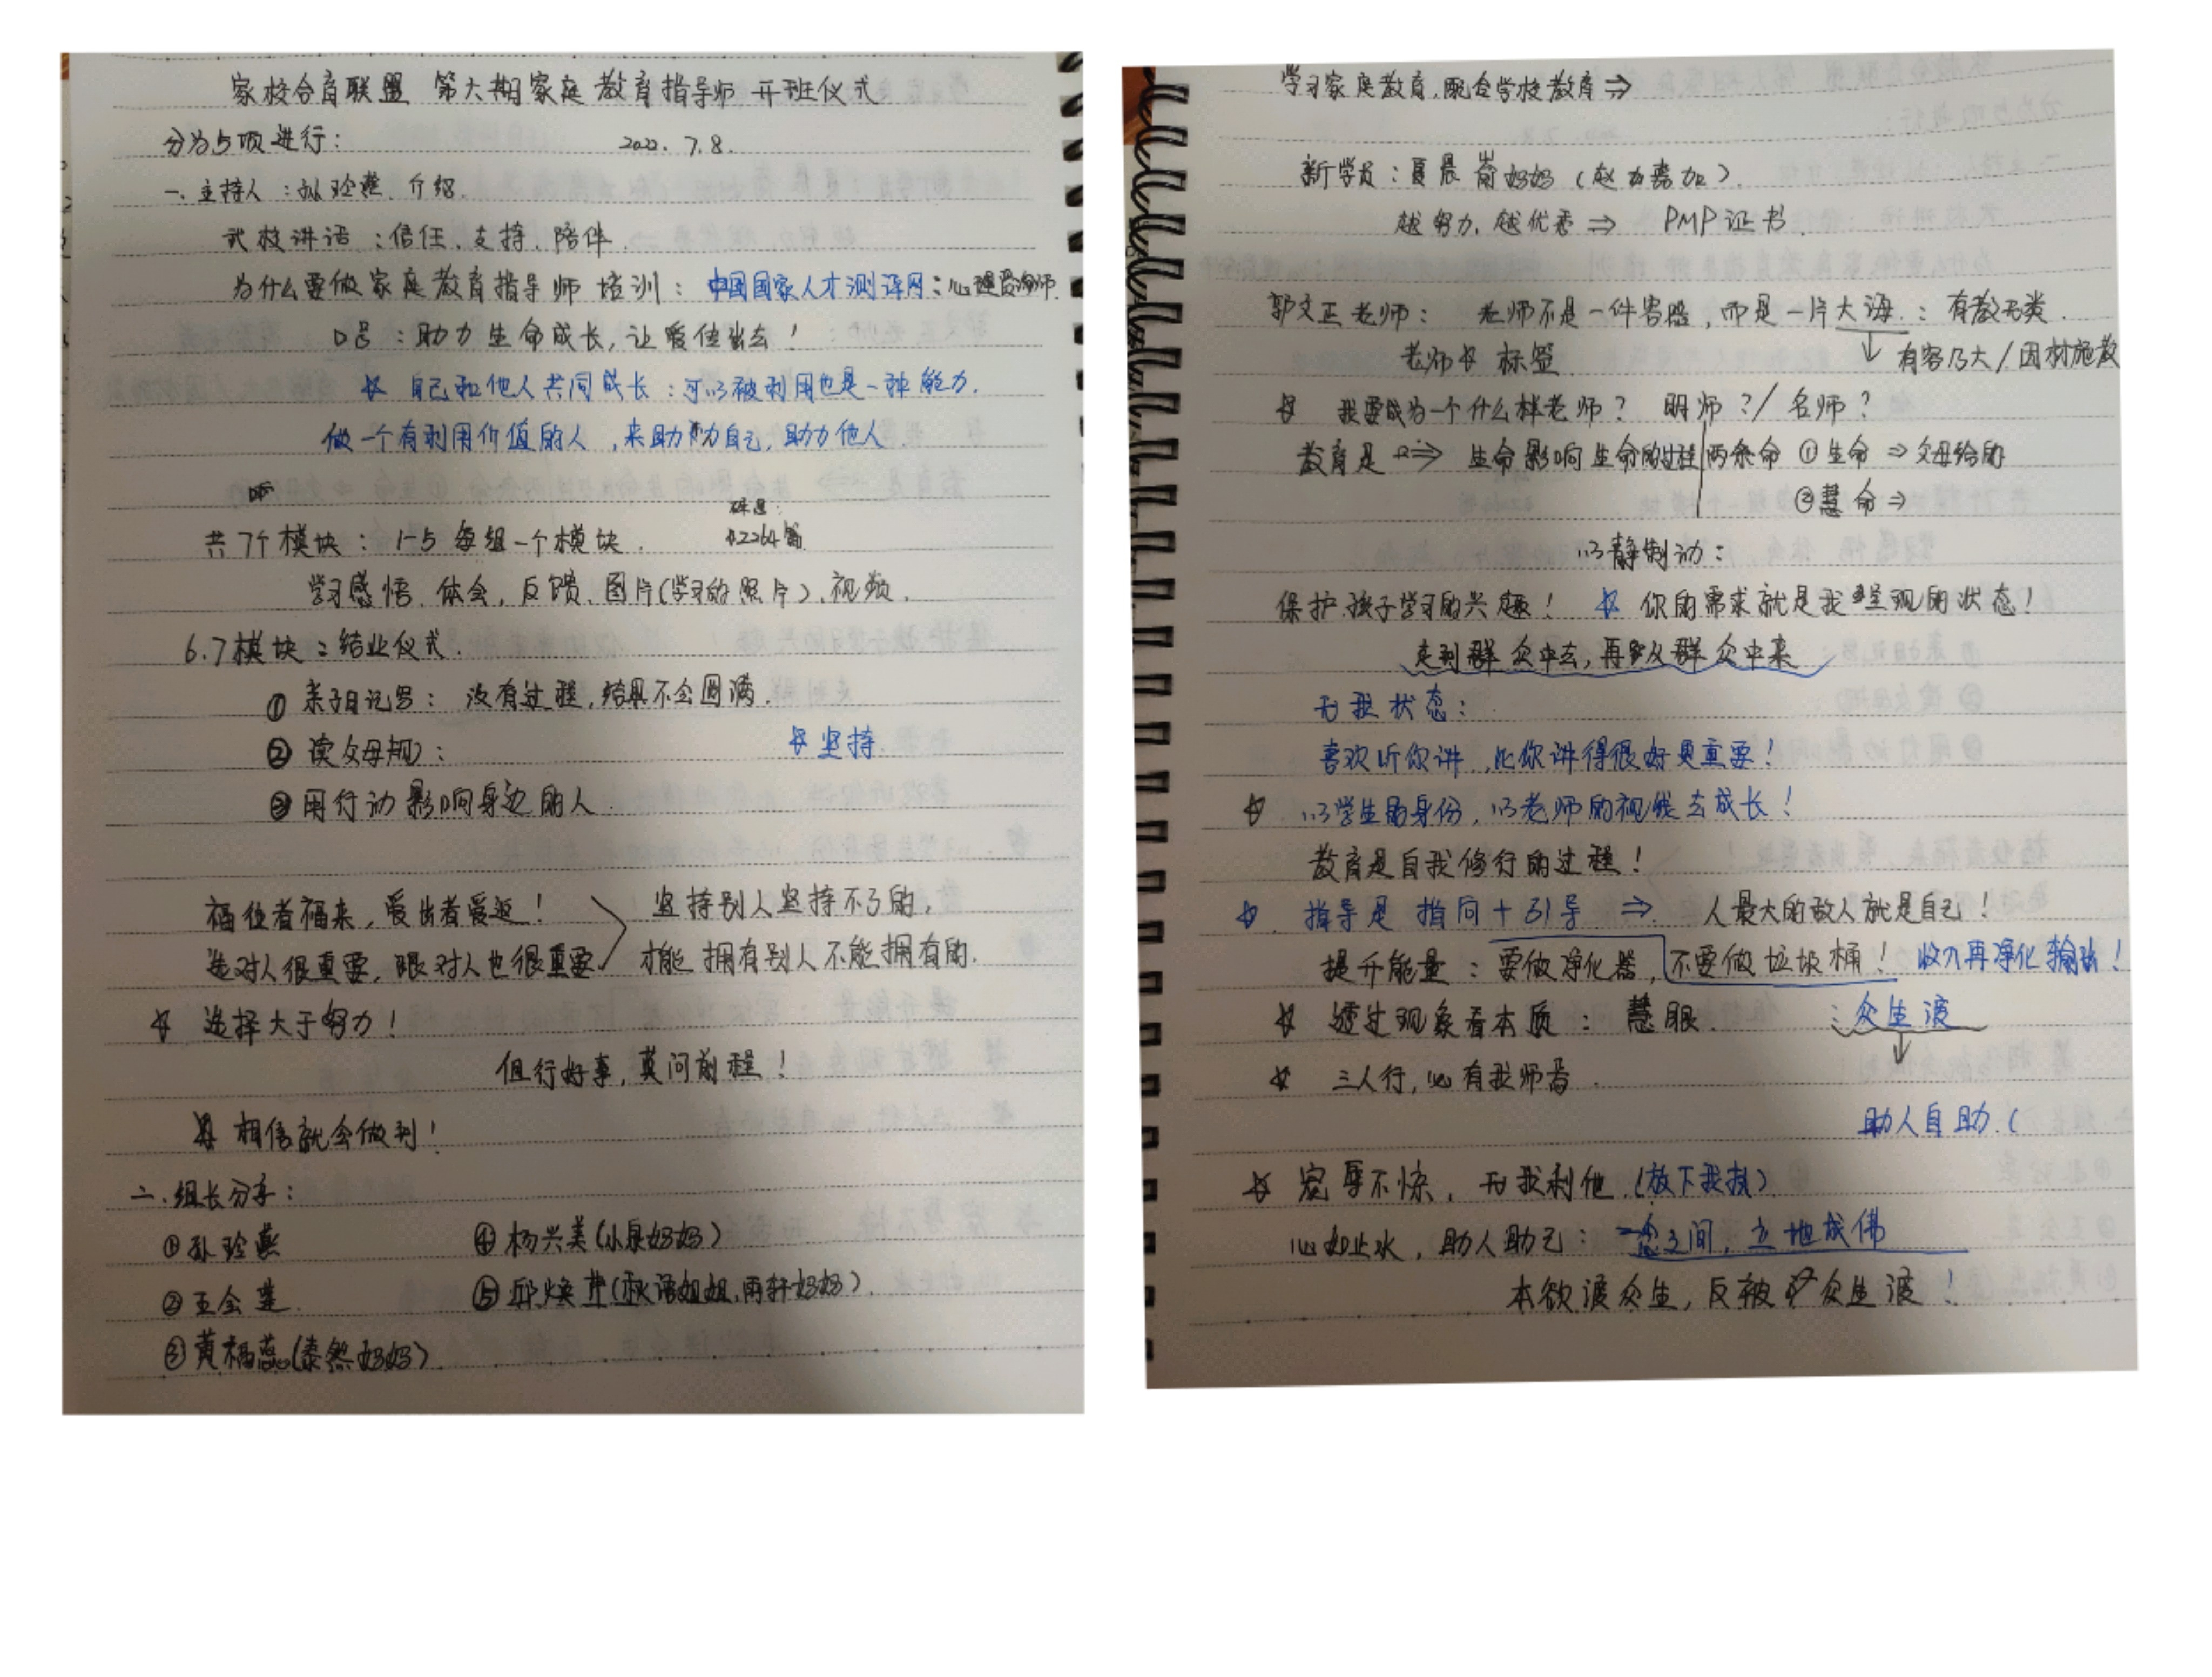 家校合育联盟 第六期家庭教育指导师 开班仪式
分为5项进行： 2022.7.8.
一、主持人：孙玲燕、介绍.
武校讲话：信任、支持、陪伴.
为什么要做家庭教育指导师培训：中国国家人才测评网：心理咨询师.
口号：助力生命成长，让爱传出去！
☆ 自己和他人共同成长：可以被利用也是一种能力.
做一个有利用价值的人，来助力自己，助力他人.
共7个模块：1-5 每组一个模块.
学习感悟、体会，反馈、图片(学习的照片)、视频.
6.7模块：结业仪式.
① 亲子日记写：没有过程，结果不会圆满.
② 读父母规： ☆坚持.
③ 用行动影响身边的人.
福往者福来，爱出者爱返！ 坚持别人坚持不了的，
选对人很重要，跟对人也很重要 才能拥有别人不能拥有的.
☆ 选择大于努力！
但行好事，莫问前程！
相信就会做到！
二、组长分享：
①孙玲燕 ④杨兴美(小泉妈妈)
②王会莲. ⑤邱焕(秋语姐姐，雨轩妈妈).
③黄福蕊(泰然妈妈).
学习家庭教育，配合学校教育⇒
新学员：夏晨 妈妈 (赵 ).
越努力，越优秀⇒ PMP证书.
郭文正老师： 老师不是一件容器，而是一片大海：有教无类.
老师☆标签. ↓有容乃大/因材施教
☆ 我要成为一个什么样老师？ 明师？/ 名师？
教育是⇒ 生命影响生命的过程 两条命 ①生命⇒父母给的
②慧命⇒
以静制动：
保护孩子学习的兴趣！ ☆ 你的需求就是我呈现的状态！
走到群众中去，再从群众中来
无我状态：
喜欢听你讲，比你讲得很好更重要！
☆ 以学生的身份，以老师的视线去成长！
教育是自我修行的过程！
☆ 指导是 指向+引导 ⇒ 人最大的敌人就是自己！
提升能量：要做净化器，不要做垃圾桶！ 收入再净化输出！
☆ 透过现象看本质：慧眼. ：众生渡
☆ 三人行，必有我师焉. ↓
助人自助.(
☆ 宠辱不惊，无我利他.(放下我执)
心如止水，助人助己：一念之间，立地成佛
本欲渡众生，反被众生渡！